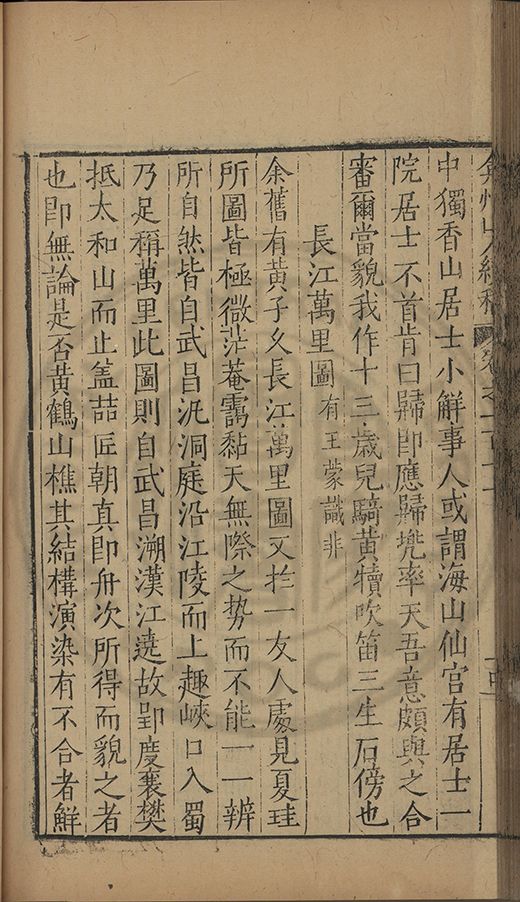 弇州山人續稿 卷之一百
中獨香山居士小觧事人或謂海山仙宮有居士一
院居士不首肯曰歸即應歸兠率天吾意頗與之合
審爾當貌我作十三歲兒騎黃犢吹笛三生石傍也
長江萬里圖 有王蒙識非
余舊有黃子久長江萬里圖又扵一友人處見夏珪
所圖皆極微茫菴靄黏天無際之势而不能一一辨
所自然皆自武昌汎洞庭沿江陵而上趣峽口入蜀
乃足稱萬里此圖則自武昌溯漢江遶故郢度襄樊
抵太和山而止盖喆匠朝真即舟次所得而貌之者
也即無論是否黃鶴山樵其結構演染有不合者鮮